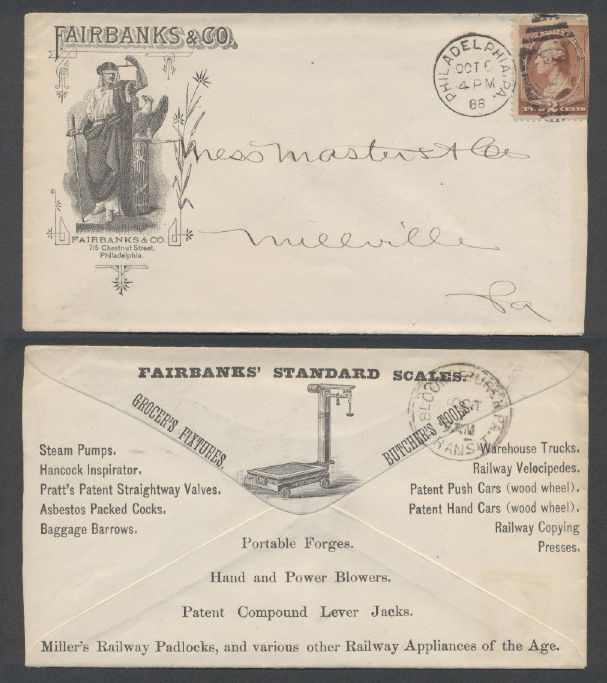 FAIRBANKS & CO.
PHILADELPHIA, PA.
OCT 6
4 PM
86
2
TWO CENTS
Mess Masters & Co
Millville
Pa
FAIRBANKS & CO.
715 Chestnut Street,
Philadelphia.
FAIRBANKS' STANDARD SCALES.
GROCER'S FIXTURES.
BUTCHER'S TOOLS.
BLOOMSBURG, PA.
TRANSIT
Steam Pumps.
Hancock Inspirator.
Pratt's Patent Straightway Valves.
Asbestos Packed Cocks.
Baggage Barrows.
Warehouse Trucks.
Railway Velocipedes.
Patent Push Cars (wood wheel).
Patent Hand Cars (wood wheel).
Railway Copying
Presses.
Portable Forges.
Hand and Power Blowers.
Patent Compound Lever Jacks.
Miller's Railway Padlocks, and various other Railway Appliances of the Age.